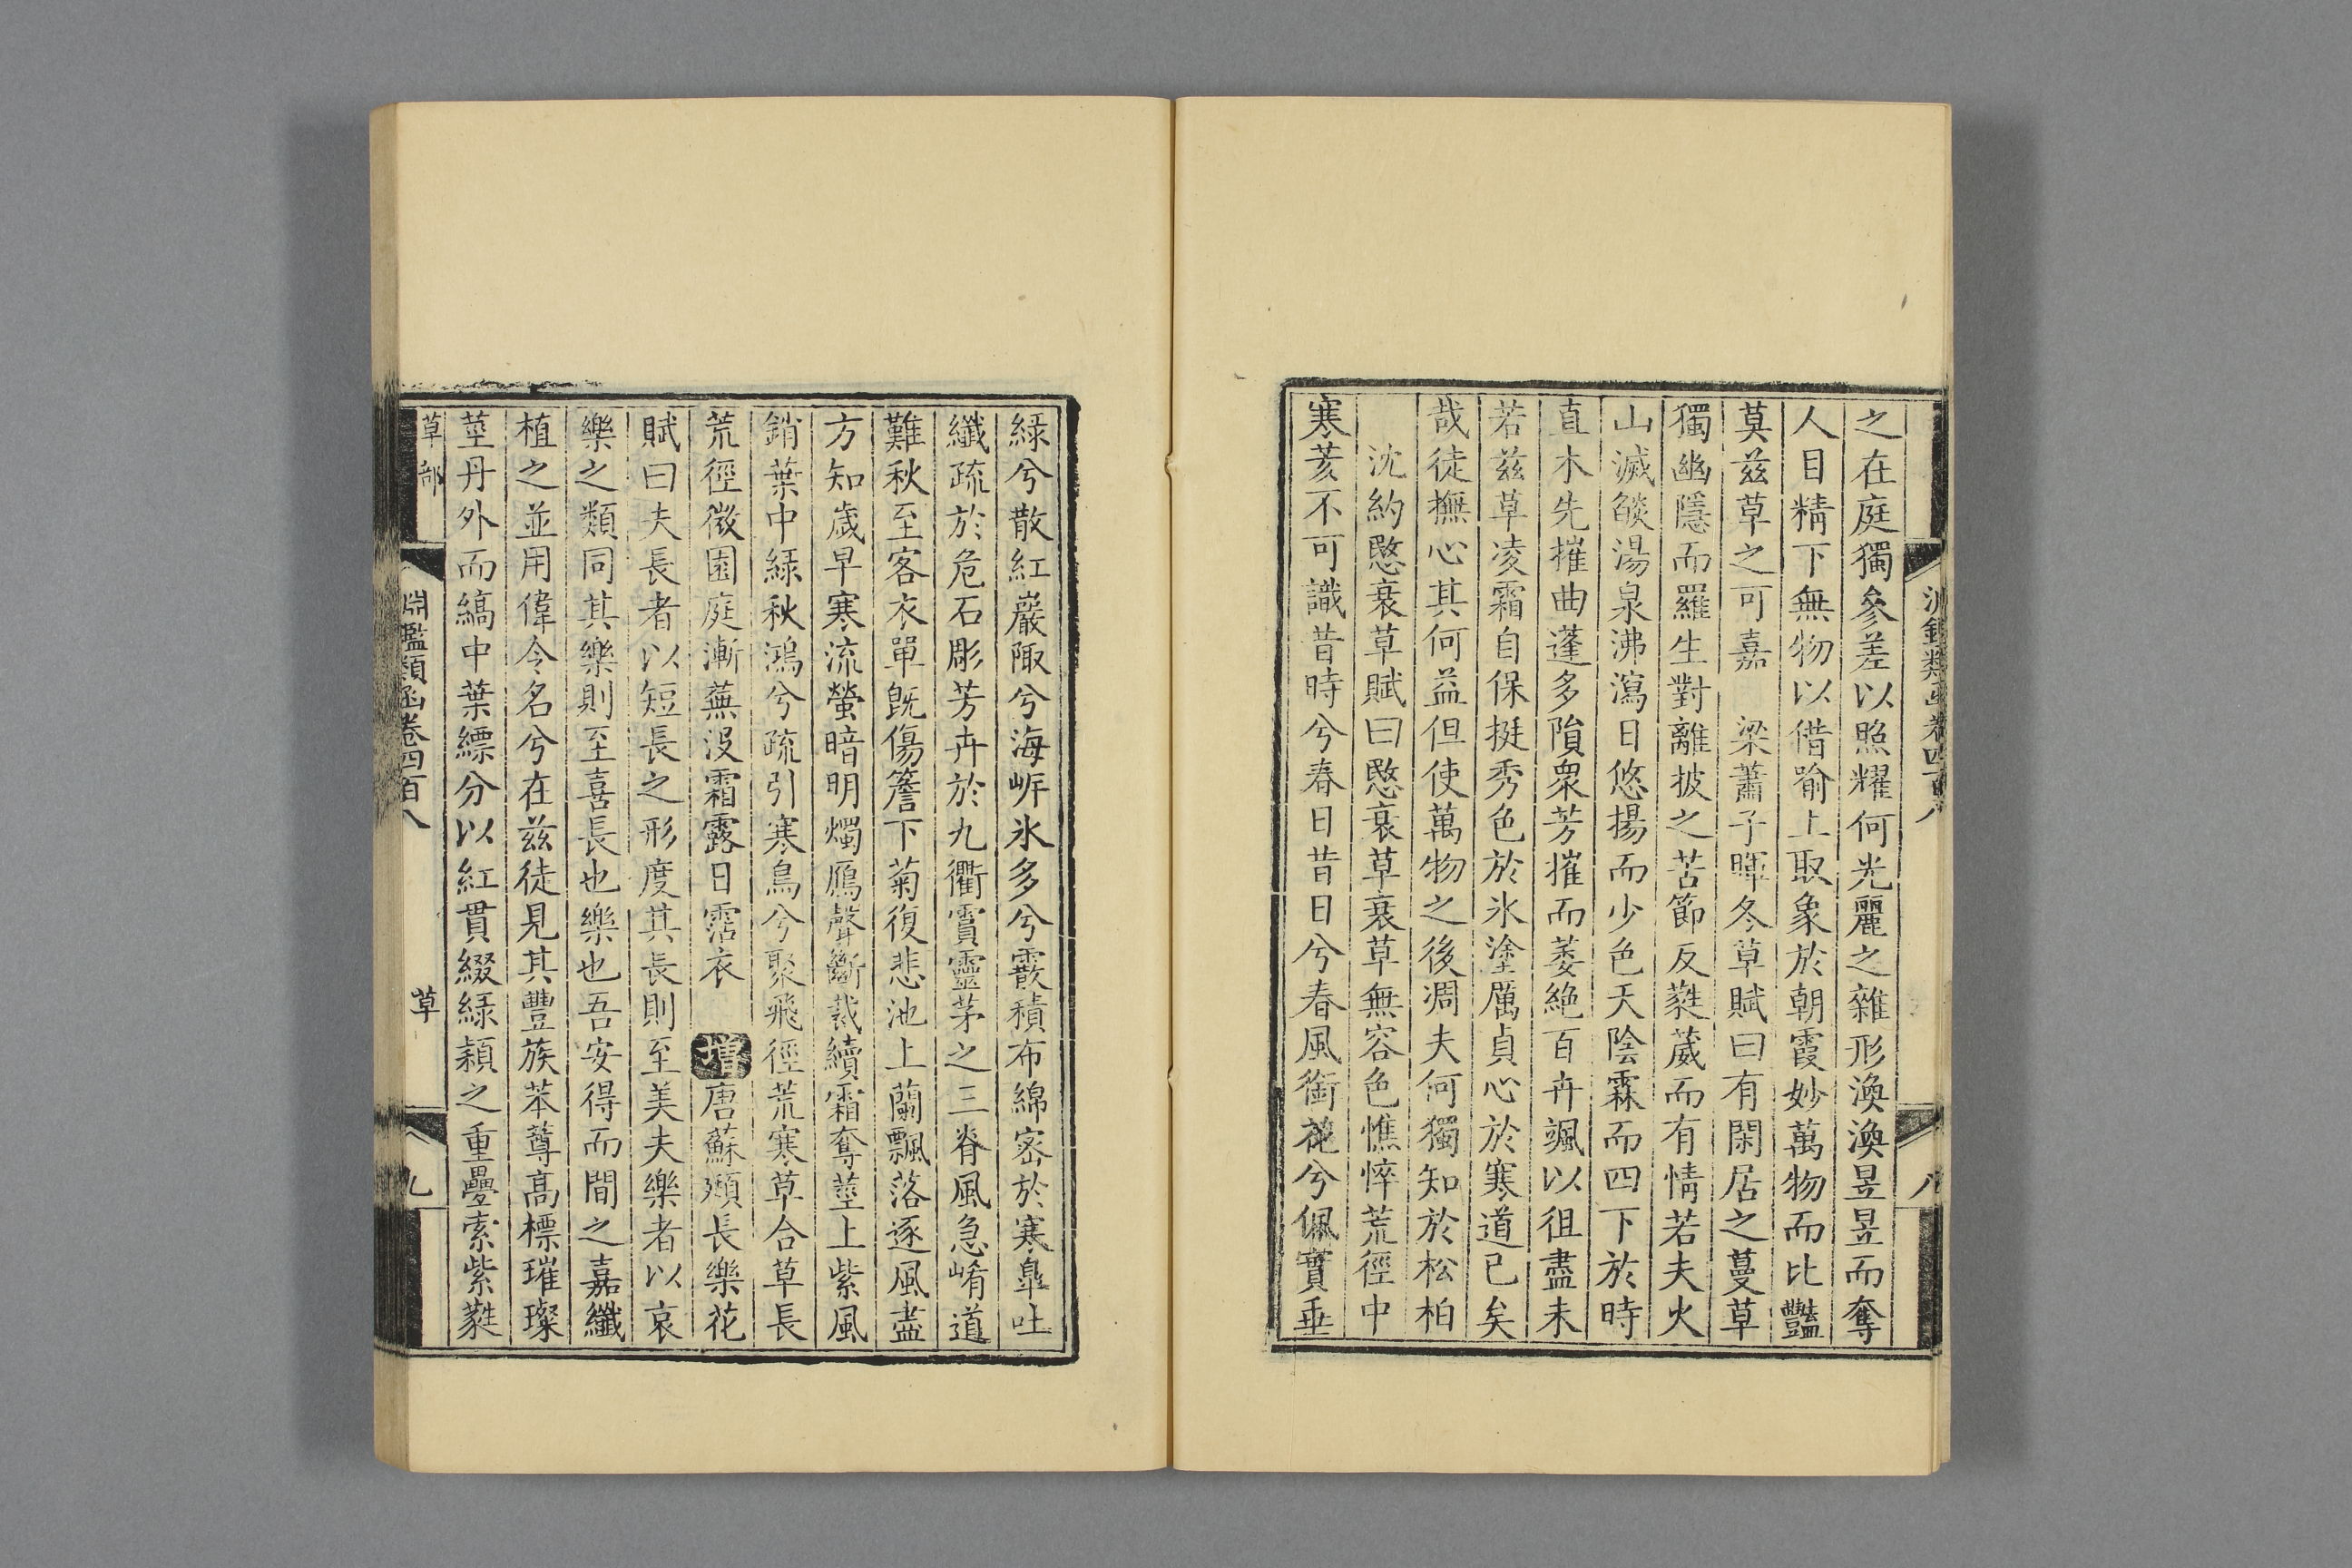 淵鑑類函卷四百八
八
之在庭獨參差以照耀何光麗之雜形渙渙昱昱而奪
人目精下無物以借喻上取象於朝霞妙萬物而比豔
莫茲草之可嘉 梁蕭子暉冬草賦曰有閑居之蔓草
獨幽隱而羅生對離披之苦節反蕤葳而有情若夫火
山滅燄湯泉沸瀉日悠揚而少色天陰霖而四下於時
直木先摧曲蓬多隕衆芳摧而萎絶百卉颯以徂盡未
若茲草凌霜自保挺秀色於氷塗厲貞心於寒道已矣
哉徒撫心其何益但使萬物之後凋夫何獨知於松柏
沈約愍衰草賦曰愍衰草衰草無容色憔悴荒徑中
寒荄不可識昔時兮春日昔日兮春風銜花兮佩實垂
綠兮散紅巖陬兮海岍氷多兮霰積布綿密於寒臯吐
纖疏於危石彫芳卉於九衢霣靈茅之三脊風急崤道
難秋至客衣單旣傷簷下菊復悲池上蘭飄落逐風盡
方知歲早寒流螢暗明燭鴈聲斷裁續霜奪莖上紫風
銷葉中綠秋鴻兮疏引寒鳥兮聚飛徑荒寒草合草長
荒徑微園庭漸蕪沒霜露日霑衣 增唐蘇頲長樂花
賦曰夫長者以短長之形度其長則至美夫樂者以哀
樂之類同其樂則至喜長也樂也吾安得而間之嘉纖
植之並用偉令名兮在茲徒見其豐族苯䔿高標璀璨
莖丹外而縞中葉縹分以紅貫綴綠穎之重疊索紫蕤
草部
淵鑑類函卷四百八
草
九